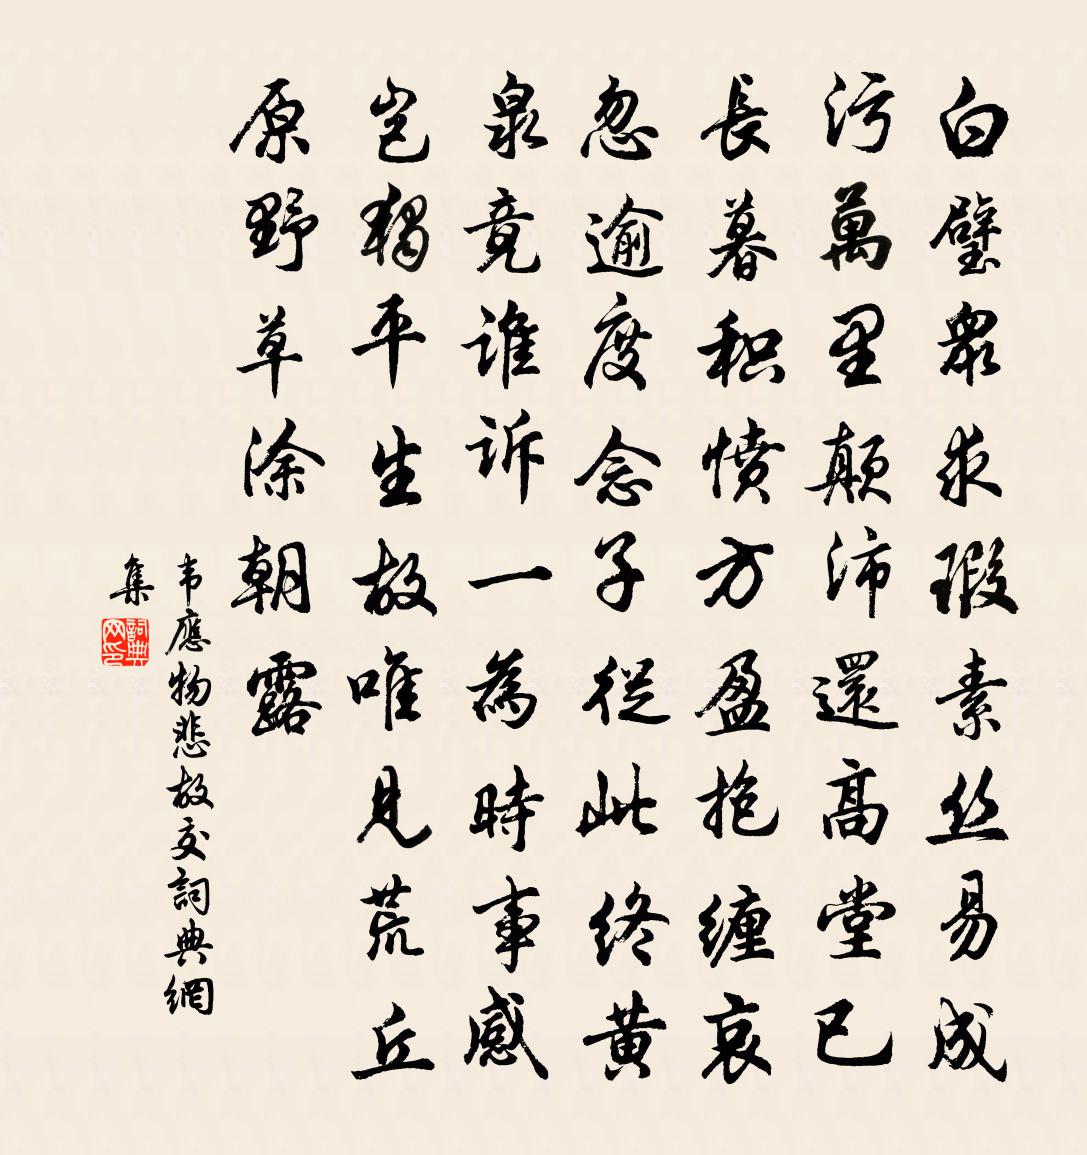 白璧眾求瑕素丝易成
污萬里顛沛還高堂已
長暮积憤方盈抱缠哀
忽逾度念子從此终黄
泉竟谁诉一為時事感
岂獨平生故唯見荒丘
原野草涂朝露
韦應物悲故交詞典網
集
詞典网印